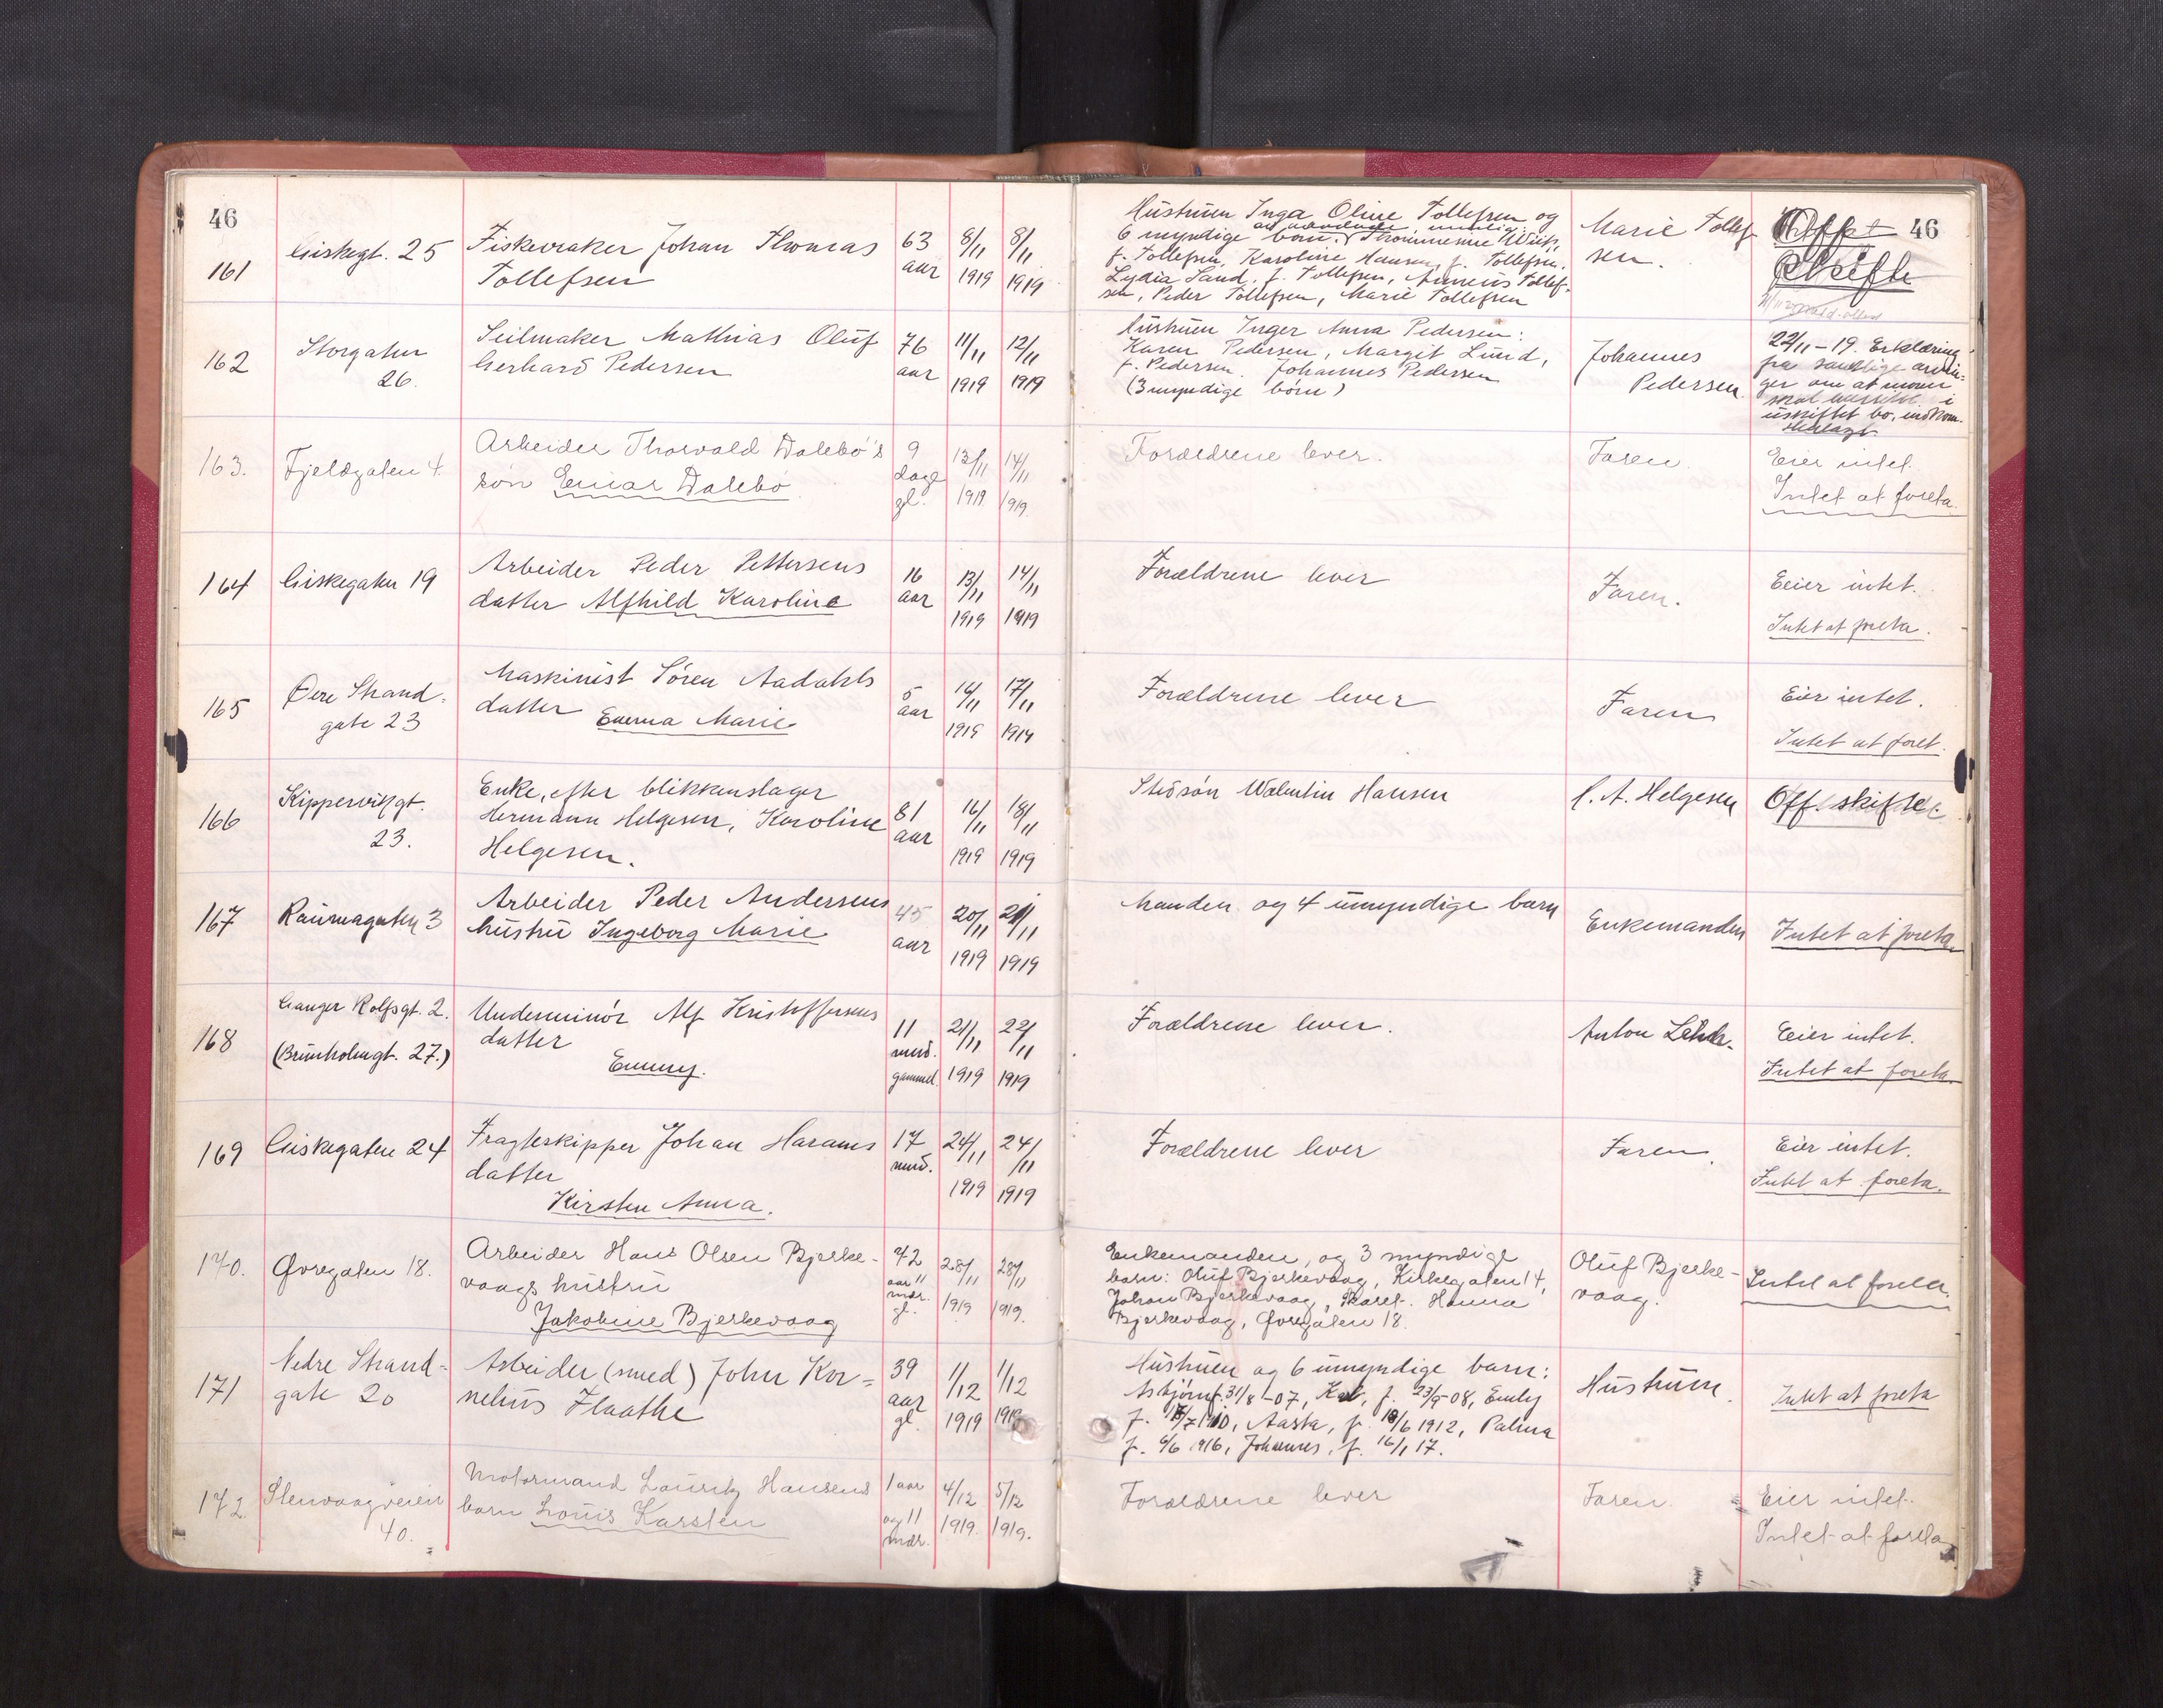 46
161
Giskegt. 25
Fiskevraker Johan Thomas
Tollefsen
63
aar
8/11
1919
8/11
1919
Hustruen Inga Oline Tollefsen og
6 myndige børn: Thommesine Wiik,
f. Tollefsen, Karoline Hansen, f. Tollefsen,
Lydia Sand, f. Tollefsen, Tollef-
sen, Peder Tollefsen, Marie Tollefsen
Marie Tollef-
sen.
46
Skifte
162
Storgaten
26.
Seilmaker Mathias Oluf
Gerhard Pedersen
76
aar
11/11
1919
12/11
1919
Hustruen Inger Anna Pedersen:
Karen Pedersen, Margit Lund,
f. Pedersen. Johannes Pedersen
(3 myndige børn)
Johannes
Pedersen.
22/11-19. Erklæring
fra samtlige arvin-
ger om at moren
skal i
uskiftet bo, indkom.
163.
Fjeldgaten 4.
Arbeider Thorvald Dalebø's
søn Einar Dalebø
9
dage
gl.
13/11
1919
14/11
1919.
Forældrene lever.
Faren.
Eier intet.
Intet at foreta.
164
Giskegaten 19
Arbeider Peder Pettersens
datter Alfhild Karoline
16
aar
13/11
1919
14/11
1919
Forældrene lever
Faren.
Eier intet.
Intet at foreta.
165
Øvre Strand-
gate 23
Maskinist Søren Aadahls
datter Emma Marie
5
aar
16/11
1919
17/11
1919
Forældrene lever
Faren
Eier intet.
Intet at foret.
166
Kippervikgt.
23.
Enke, efter blikkenslager
Hermann Helgesen, Karoline
Helgesen.
81
aar
16/11
1919
18/11
1919
Stedsøn Walentin Hansen
C. A. Helgesen
Off. skifte.
167
Raumagaten 3
Arbeider Peder Andersens
hustru Ingeborg Marie
45
aar
20/11
1919
21/11
1919
Manden og 4 umyndige barn
Enkemanden
Intet at foreta.
168
Ganger Rolfsgt. 2.
(Brunholmgt. 27.)
Underminør Alf Kristoffersens
datter
Emmy.
11
mnd.
gammel.
21/11
1919
22/11
1919
Forældrene lever.
Anton
Eier intet.
Intet at foreta.
169
Giskegaten 24
Fragteskipper Johan Harams
datter
Kirsten Anna.
17
mnd.
24/11
1919
24/11
1919
Forældrene lever
Faren.
Eier intet.
Intet at foreta.
170.
Øvregaten 18.
Arbeider Hans Olsen Bjerke-
vaags hustru
Jakobine Bjerkevaag
72
aar 11
mdr.
gl.
28/11
1919
28/11
1919.
Enkemanden, og 3 myndige
barn: Oluf Bjerkevaag, Kirkegaten 14,
Johan Bjerkevaag, Skaret. Hanna
Bjerkevaag, Øvregaten 18.
Oluf Bjerke-
vaag.
Intet at foreta.
171
Nedre Strand-
gate 20
Arbeider (smed) John Kor-
nelius Flaathe
39
aar
gl.
1/12
1919
1/12
1919
Hustruen og 6 umyndige barn:
Asbjørn f. 31/8-07, f. 23/9-08, Emly
f. 1910, Aasta, f. 18/6 1912, Palma
f. 6/6 1916, Johannes, f. 16/1 17.
Hustruen.
Intet at foreta
172.
Stenvaagveien
40.
Motormand Lauritz Hansens
barn Louis Karsten
1 aar
og 11
mdr.
4/12
1919.
5/12
1919.
Forældrene lever
Faren.
Eier intet.
Intet at foreta